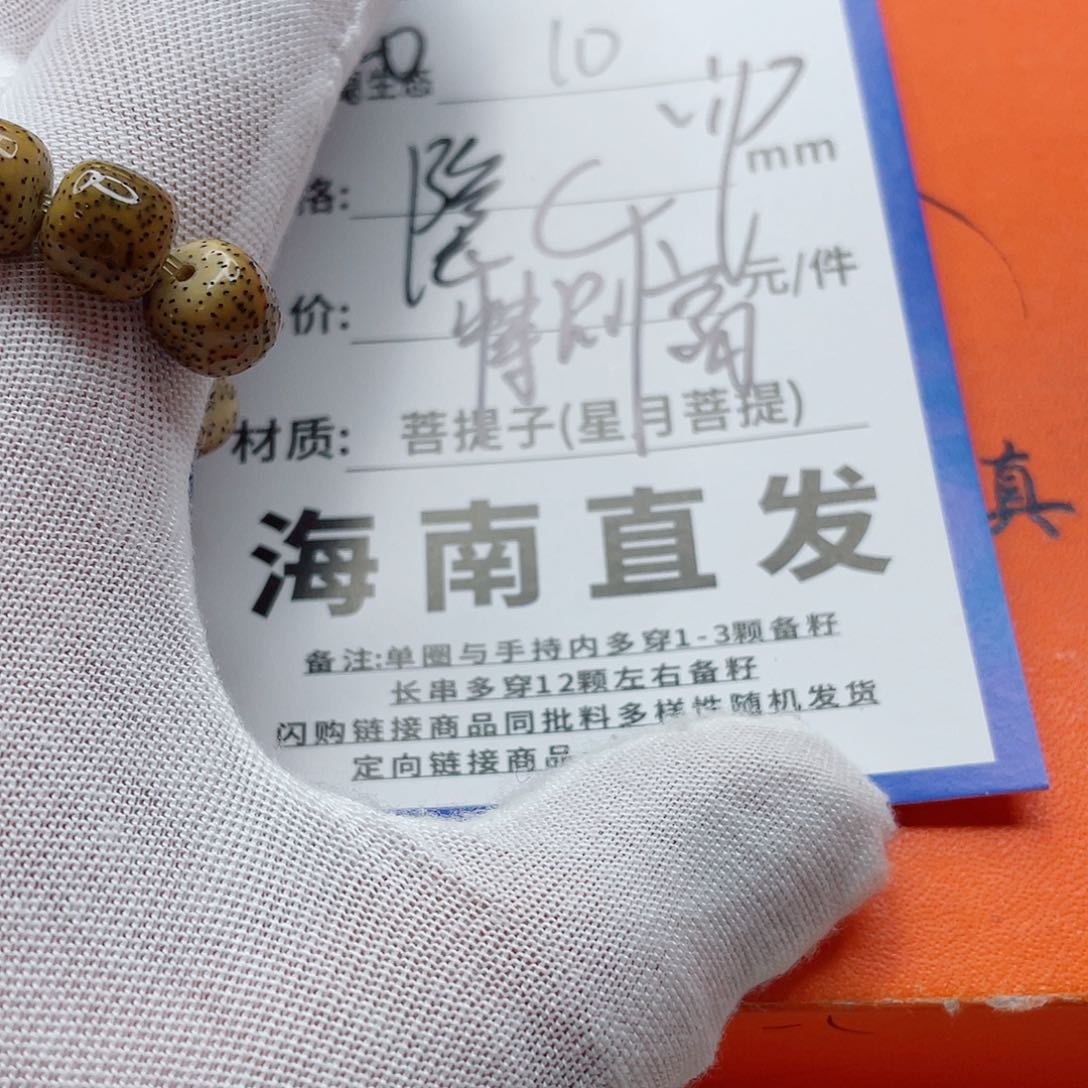 生态 10
格: mm
价: 元/件
特别
材质: 菩提子(星月菩提)
真
海南直发
备注:单圈与手持内多穿1-3颗备籽
长串多穿12颗左右备籽
闪购链接商品同批料多样性随机发货
定向链接商品